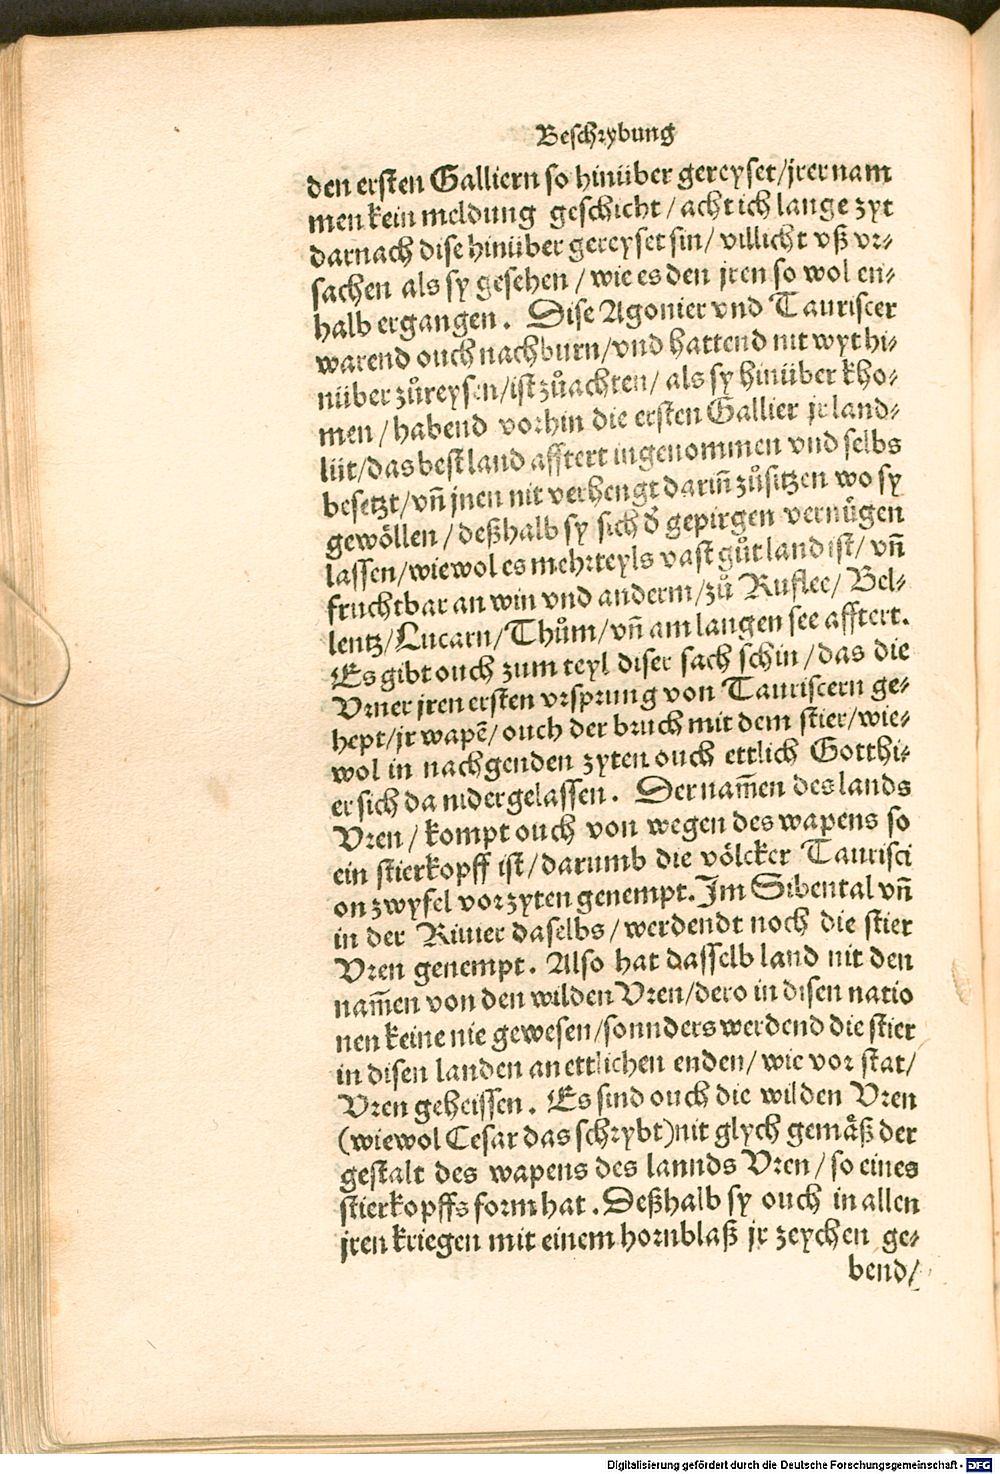 Beschrybung
den ersten Galliern so hinüber gereyset/jrer nam
men kein meldung geschicht / acht ich lange zyt
darnach dise hinüber gereyset sin/ villicht vß vr⸗
sachen als sy gesehen / wie es den jren so wol en⸗
halb ergangen. Dise Agonier vnd Tauriscer
warend ouch nachburn/vnd hattend nit wyt hi⸗
nüber zůreysen/ist zůachten/ als sy hinüber kho⸗
men / habend vorhin die ersten Gallier jr land⸗
lüt/das best land afftert ingenommen vnd selbs
besetzt/vñ jnen nit verhengt dariñ zůsitzen wo sy
gewöllen / deßhalb sy sich d̕ gepirgen vernůgen
lassen/wiewol es mehrteyls vast gůt land ist/ vñ
fruchtbar an win vnd anderm/zů Ruflee/ Bel⸗
lentz/Lucarn/Thům/vñ am langen see afftert.
Es gibt ouch zum teyl diser sach schin/das die
Vrner jren ersten vrsprung von Tauriscern ge⸗
hept/jr wapẽ/ ouch der bruch mit dem stier/wie⸗
wol in nachgenden zyten ouch ettlich Gotthi⸗
er sich da nidergelassen. Der nam̃en des lands
Vren / kompt ouch von wegen des wapens so
ein stierkopff ist/darumb die völcker Taurisci
on zwyfel vorzyten genempt. Im Sibental vñ
in der Riuier daselbs/werdendt noch die stier
Vren genempt. Also hat dasselb land nit den
nam̃en von den wilden Vren/dero in disen natio
nen keine nie gewesen/sonnders werdend die stier
in disen landen an ettlichen enden/ wie vor stat/
Vren geheissen. Es sind ouch die wilden Vren
(wiewol Cesar das schrybt)nit glych gemäß der
gestalt des wapens des lannds Vren/so eines
stierkopffs form hat. Deßhalb sy ouch in allen
jren kriegen mit einem hornblaß jr zeychen ge⸗
bend/
Digitalisierung gefördert durch die Deutsche Forschungsgemeinschaft - DFG